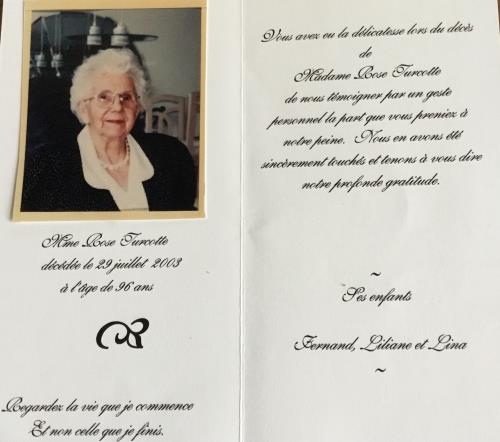 Mme Rose Turcotte
décédée le 29 juillet 2003
à l'âge de 96 ans
Regardez la vie que je commence
Et non celle que je finis.
Vous avez eu la délicatesse lors du décès
de
Madame Rose Turcotte
de nous témoigner par un geste
personnel la part que vous preniez à
notre peine. Nous en avons été
sincèrement touchés et tenons à vous dire
notre profonde gratitude.
~
Ses enfants
Fernand, Liliane et Lina
~